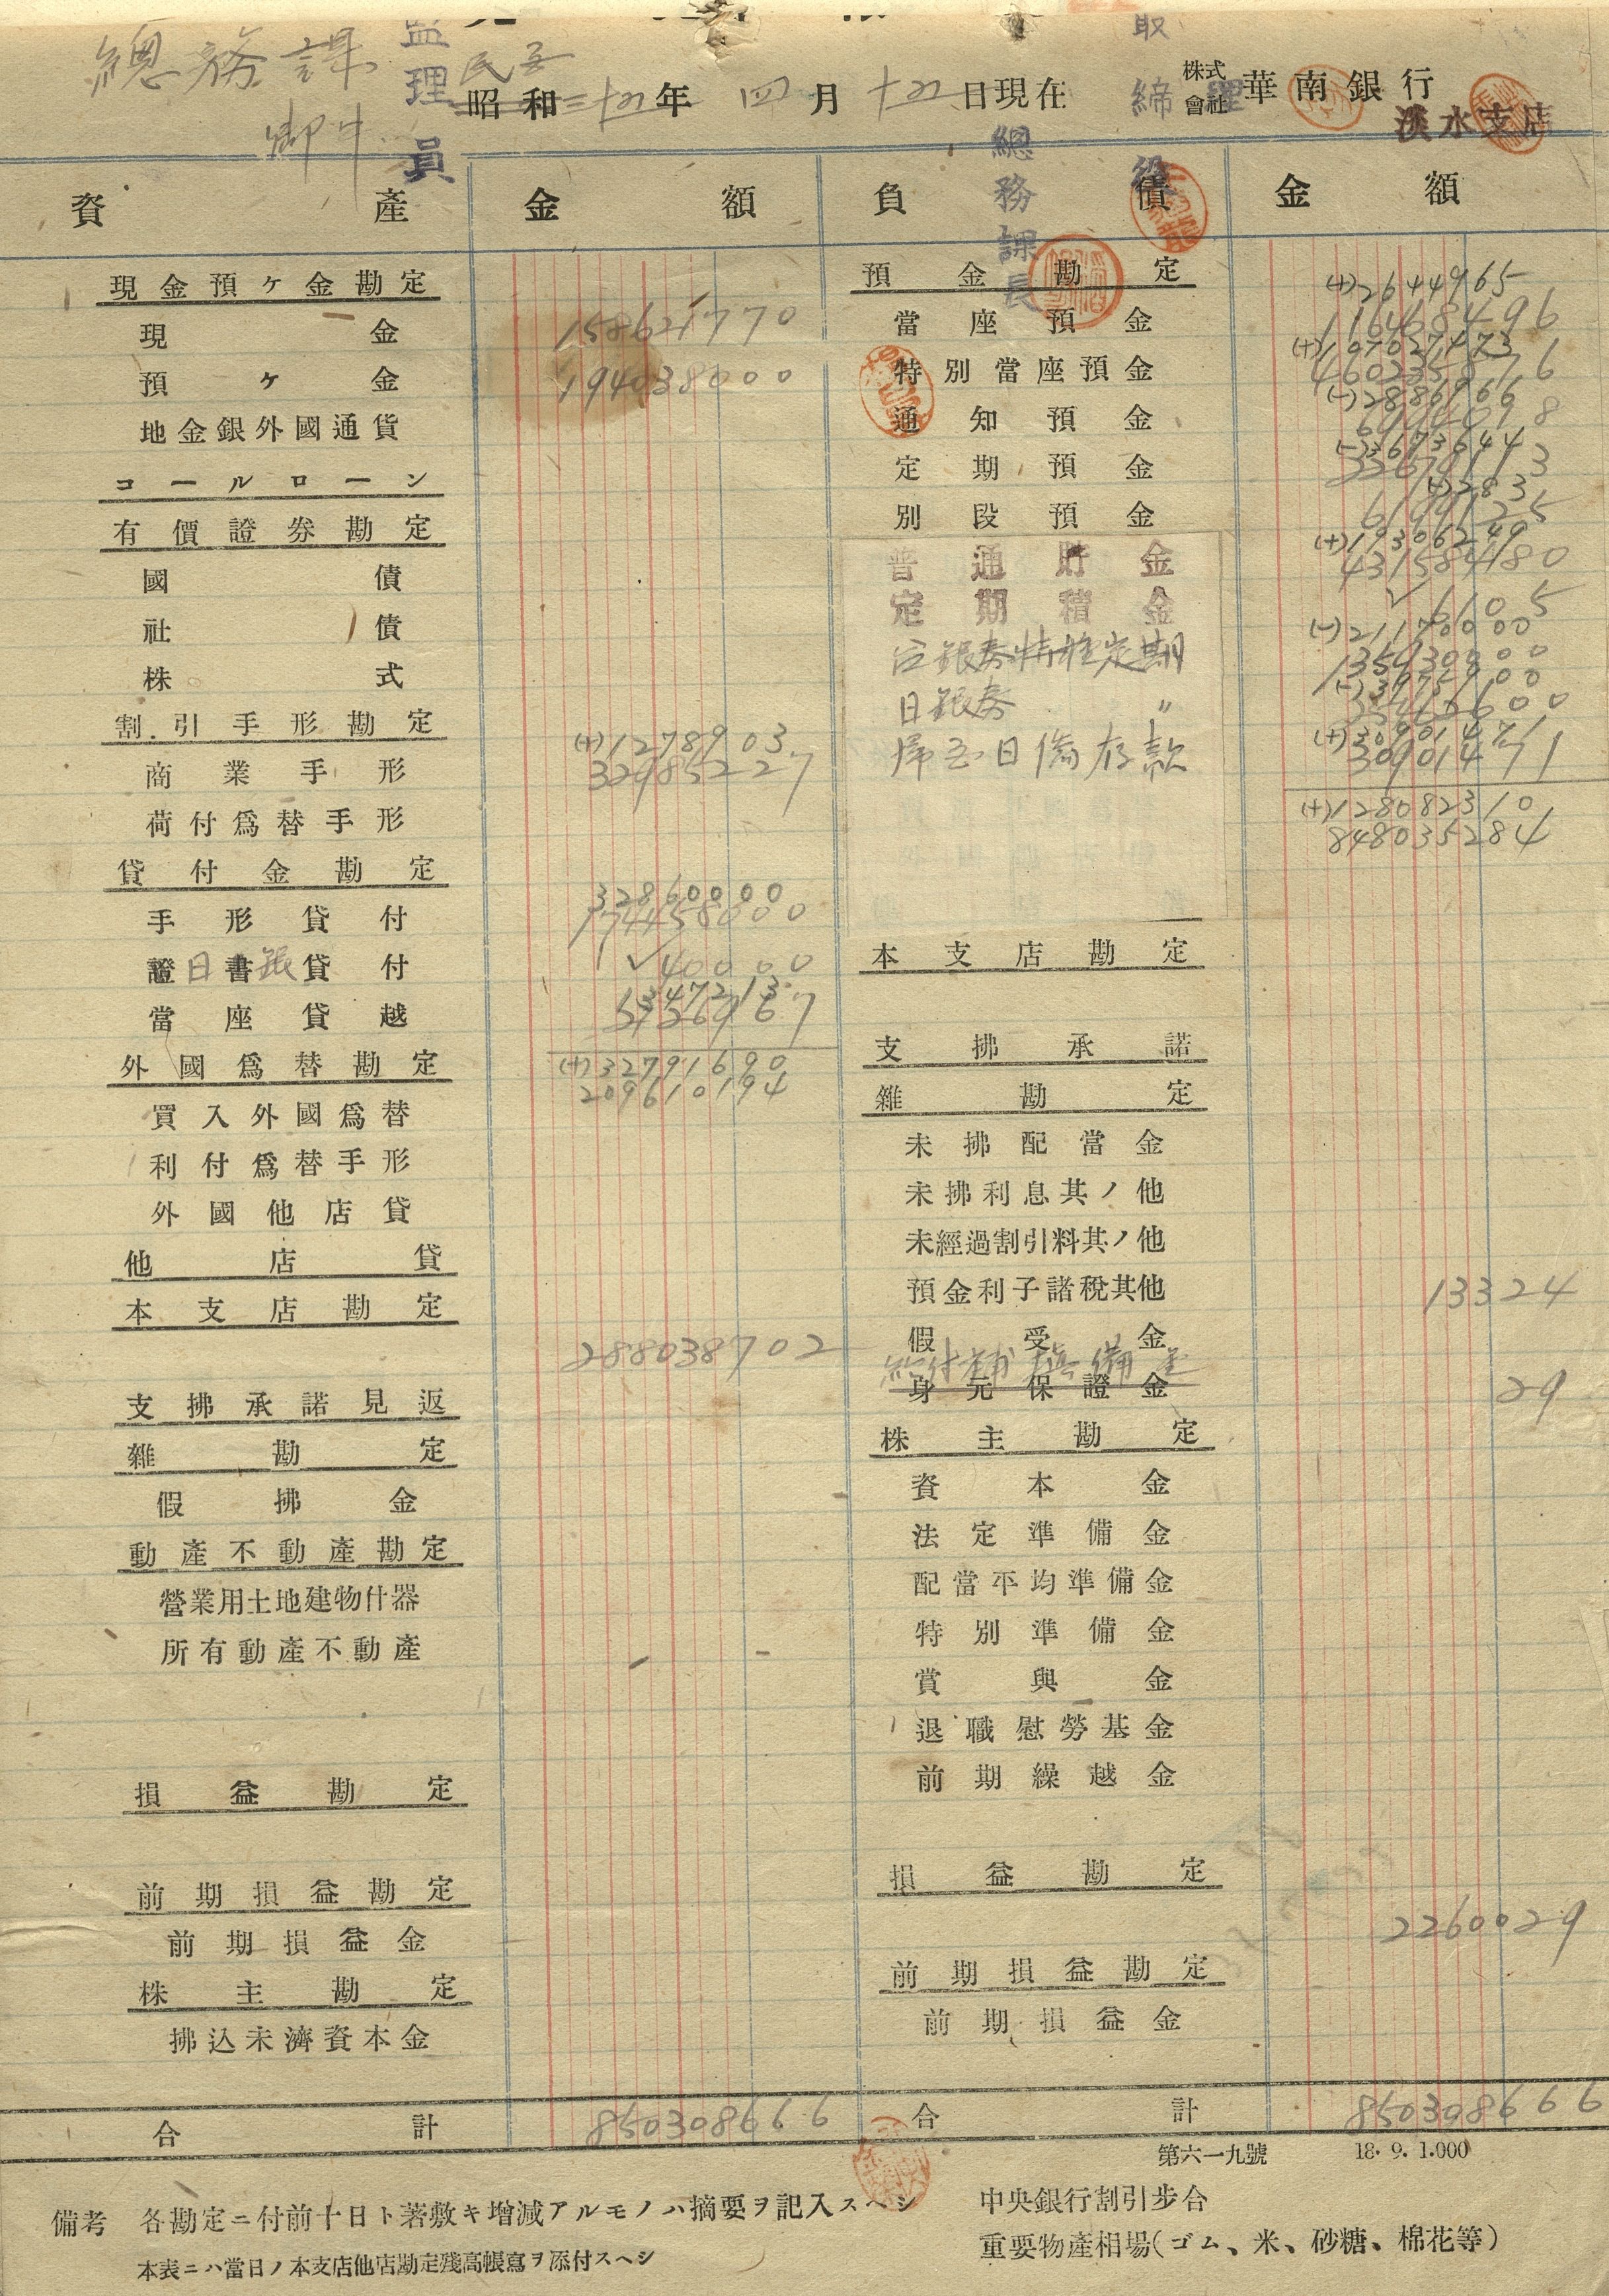 總務課
御中
監理員
取締役
總務課長
昭和 年 四月 日現在
株式會社 華南銀行
淡水支店
資產 金額 負債 金額
現金預ケ金勘定
現金 158621770
預ケ金 194038000
地金銀外國通貨
コールローン
有價證券勘定
國債
社債
株式
割引手形勘定
(+)1278903
商業手形 32985227
荷付爲替手形
貸付金勘定
32860000
手形貸付 174458000
證書貸付 日銀 40000
當座貸越
外國爲替勘定
(+)32791690
209610194
買入外國爲替
利付爲替手形
外國他店貸
他店貸
本支店勘定
288038702
支拂承諾見返
雜勘定
假拂金
動產不動產勘定
營業用土地建物什器
所有動產不動產
損益勘定
前期損益勘定
前期損益金
株主勘定
拂込未濟資本金
合計 850308666
預金勘定
(+)2644965
當座預金 116468496
特別當座預金
通知預金
定期預金
別段預金
(+)19306249
普通貯金 431584180
定期積金 6105
(-)21170000
台銀券特種定期
日銀券 〃
(+)30901471
歸国日僑存款 30901471
(+)128082310
848035284
本支店勘定
支拂承諾
雜勘定
未拂配當金
未拂利息其ノ他
未經過割引料其ノ他
預金利子諸稅其他 13324
假受金
給付補塡備金
身元保證金 29
株主勘定
資本金
法定準備金
配當平均準備金
特別準備金
賞與金
退職慰勞基金
前期繰越金
損益勘定
2260029
前期損益勘定
前期損益金
合計 850308666
第六一九號 18. 9. 1.000
備考 各勘定ニ付前十日ト著敷キ增減アルモノハ摘要ヲ記入スヘシ
本表ニハ當日ノ本支店他店勘定殘高帳寫ヲ添付スヘシ
中央銀行割引步合
重要物產相場(ゴム、米、砂糖、棉花等)